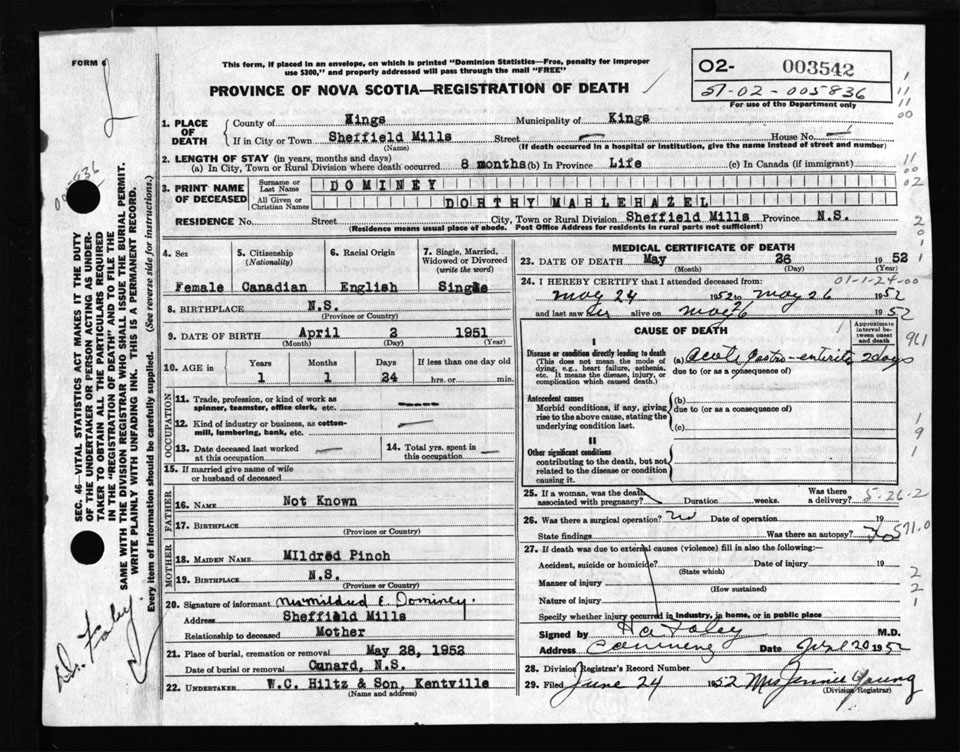 FORM 6
This form, if placed in an envelope, on which is printed "Dominion Statistics—Free, penalty for improper
use $300," and properly addressed will pass through the mail "FREE"
PROVINCE OF NOVA SCOTIA—REGISTRATION OF DEATH
02- 003542
51-02-005836
For use of the Department only
1. PLACE OF DEATH
County of Kings Municipality of Kings
If in City or Town Sheffield Mills Street House No.
(Name) (If death occurred in a hospital or institution, give the name instead of street and number)
2. LENGTH OF STAY (in years, months and days)
(a) In City, Town or Rural Division where death occurred 8 months (b) in Province Life (c) in Canada (if immigrant)
3. PRINT NAME OF DECEASED
Surname or Last Name DOMINEY
All Given or Christian Names DORTHY MAHLEHAZEL
RESIDENCE No. Street City, Town or Rural Division Sheffield Mills Province N.S.
(Residence means usual place of abode. Post Office Address for residents in rural parts not sufficient)
4. Sex
Female
5. Citizenship (Nationality)
Canadian
6. Racial Origin
English
7. Single, Married, Widowed or Divorced (write the word)
Single
8. BIRTHPLACE N.S.
(Province or Country)
9. DATE OF BIRTH April 2 1951
(Month) (Day) (Year)
10. AGE in Years Months Days If less than one day old
1 1 24 hrs. or min.
OCCUPATION
11. Trade, profession, or kind of work as
spinner, teamster, office clerk, etc.
12. Kind of industry or business, as cotton-
mill, lumbering, bank, etc.
13. Date deceased last worked
at this occupation
14. Total yrs. spent in
this occupation
15. If married give name of wife
or husband of deceased
FATHER
16. NAME Not Known
17. BIRTHPLACE
(Province or Country)
MOTHER
18. MAIDEN NAME Mildred Pinch
19. BIRTHPLACE N.S.
(Province or Country)
20. Signature of informant Mrs Mildred E. Dominey.
Address Sheffield Mills
Relationship to deceased Mother
21. Place of burial, cremation or removal May 28, 1952
Date of burial or removal Canard, N.S.
22. UNDERTAKER W.C. Hiltz & Son, Kentville
(Name and address)
MEDICAL CERTIFICATE OF DEATH
23. DATE OF DEATH May 26 1952
(Month) (Day) (Year)
24. I HEREBY CERTIFY that I attended deceased from: 01-1-24-00
May 24 1952 to May 26 1952
and last saw her alive on May 26 1952
CAUSE OF DEATH
Approximate interval between onset and death
I
Disease or condition directly leading to death
(This does not mean the mode of
dying, e.g., heart failure, asthenia,
etc. It means the disease, injury, or
complication which caused death.)
(a) Acute Gastro-enteritis 2 days
due to (or as a consequence of)
Antecedent causes
Morbid conditions, if any, giving
rise to the above cause, stating the
underlying condition last.
(b)
due to (or as a consequence of)
(c)
II
Other significant conditions
contributing to the death, but not
related to the disease or condition
causing it.
25. If a woman, was the death
associated with pregnancy? Duration weeks. Was there a delivery? 5-26-2
26. Was there a surgical operation? No Date of operation 19
State findings Was there an autopsy? No 571.0
27. If death was due to external causes (violence) fill in also the following:—
Accident, suicide or homicide? Date of injury 19
(State which)
Manner of injury
(How sustained)
Nature of injury
Specify whether injury occurred in industry, in home, or in public place
Signed by M.D.
Address Canning Date 20 1952
28. Division Registrar's Record Number
29. Filed June 24 1952 Mrs Jennie Young
(Division Registrar)
SEC. 46—VITAL STATISTICS ACT MAKES IT THE DUTY
OF THE UNDERTAKER OR PERSON ACTING AS UNDER-
TAKER TO OBTAIN ALL THE PARTICULARS REQUIRED
IN THE "REGISTRATION OF DEATH" AND TO FILE THE
SAME WITH THE DIVISION REGISTRAR WHO SHALL ISSUE THE BURIAL PERMIT.
WRITE PLAINLY WITH UNFADING INK. THIS IS A PERMANENT RECORD.
Every item of Information should be carefully supplied. (See reverse side for instructions.)
Dr. Foley